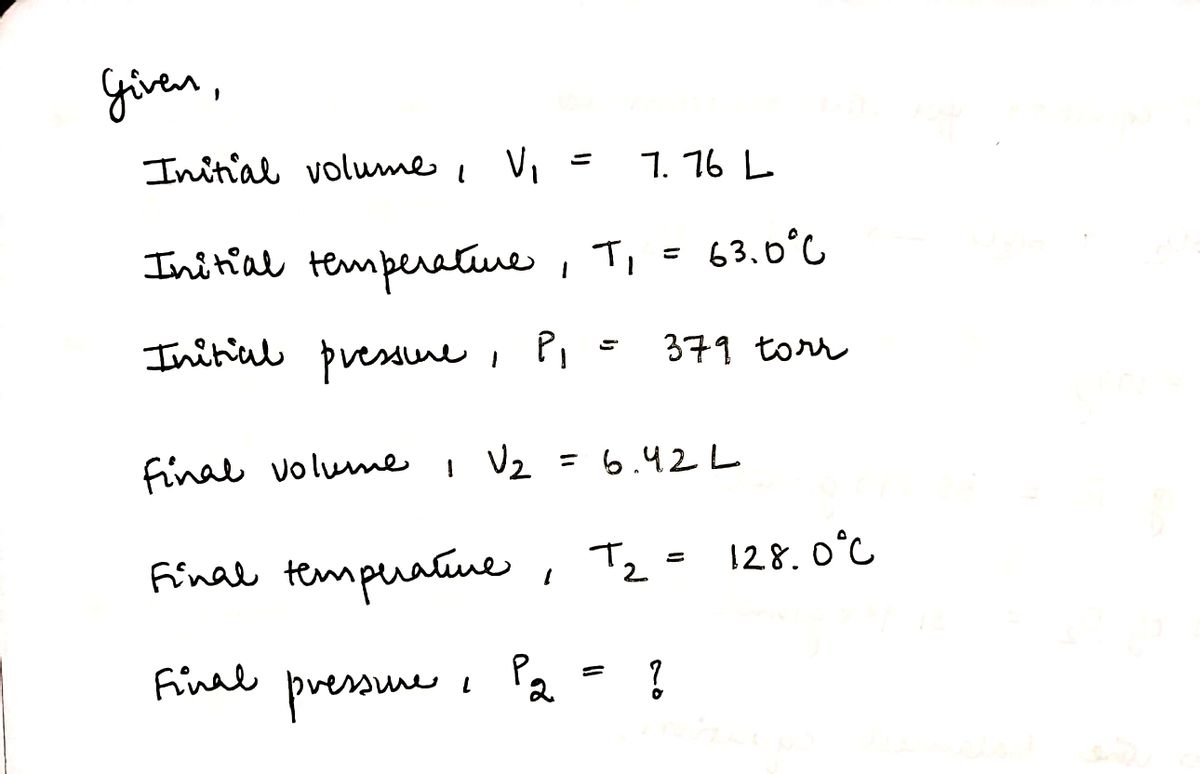 Given,
Initial volume, V₁ = 7.76 L
Initial temperature, T₁ = 63.0°C
Initial pressure, P₁ = 379 torr
Final volume, V₂ = 6.42 L
Final temperature, T₂ = 128.0°C
Final pressure, P₂ = ?